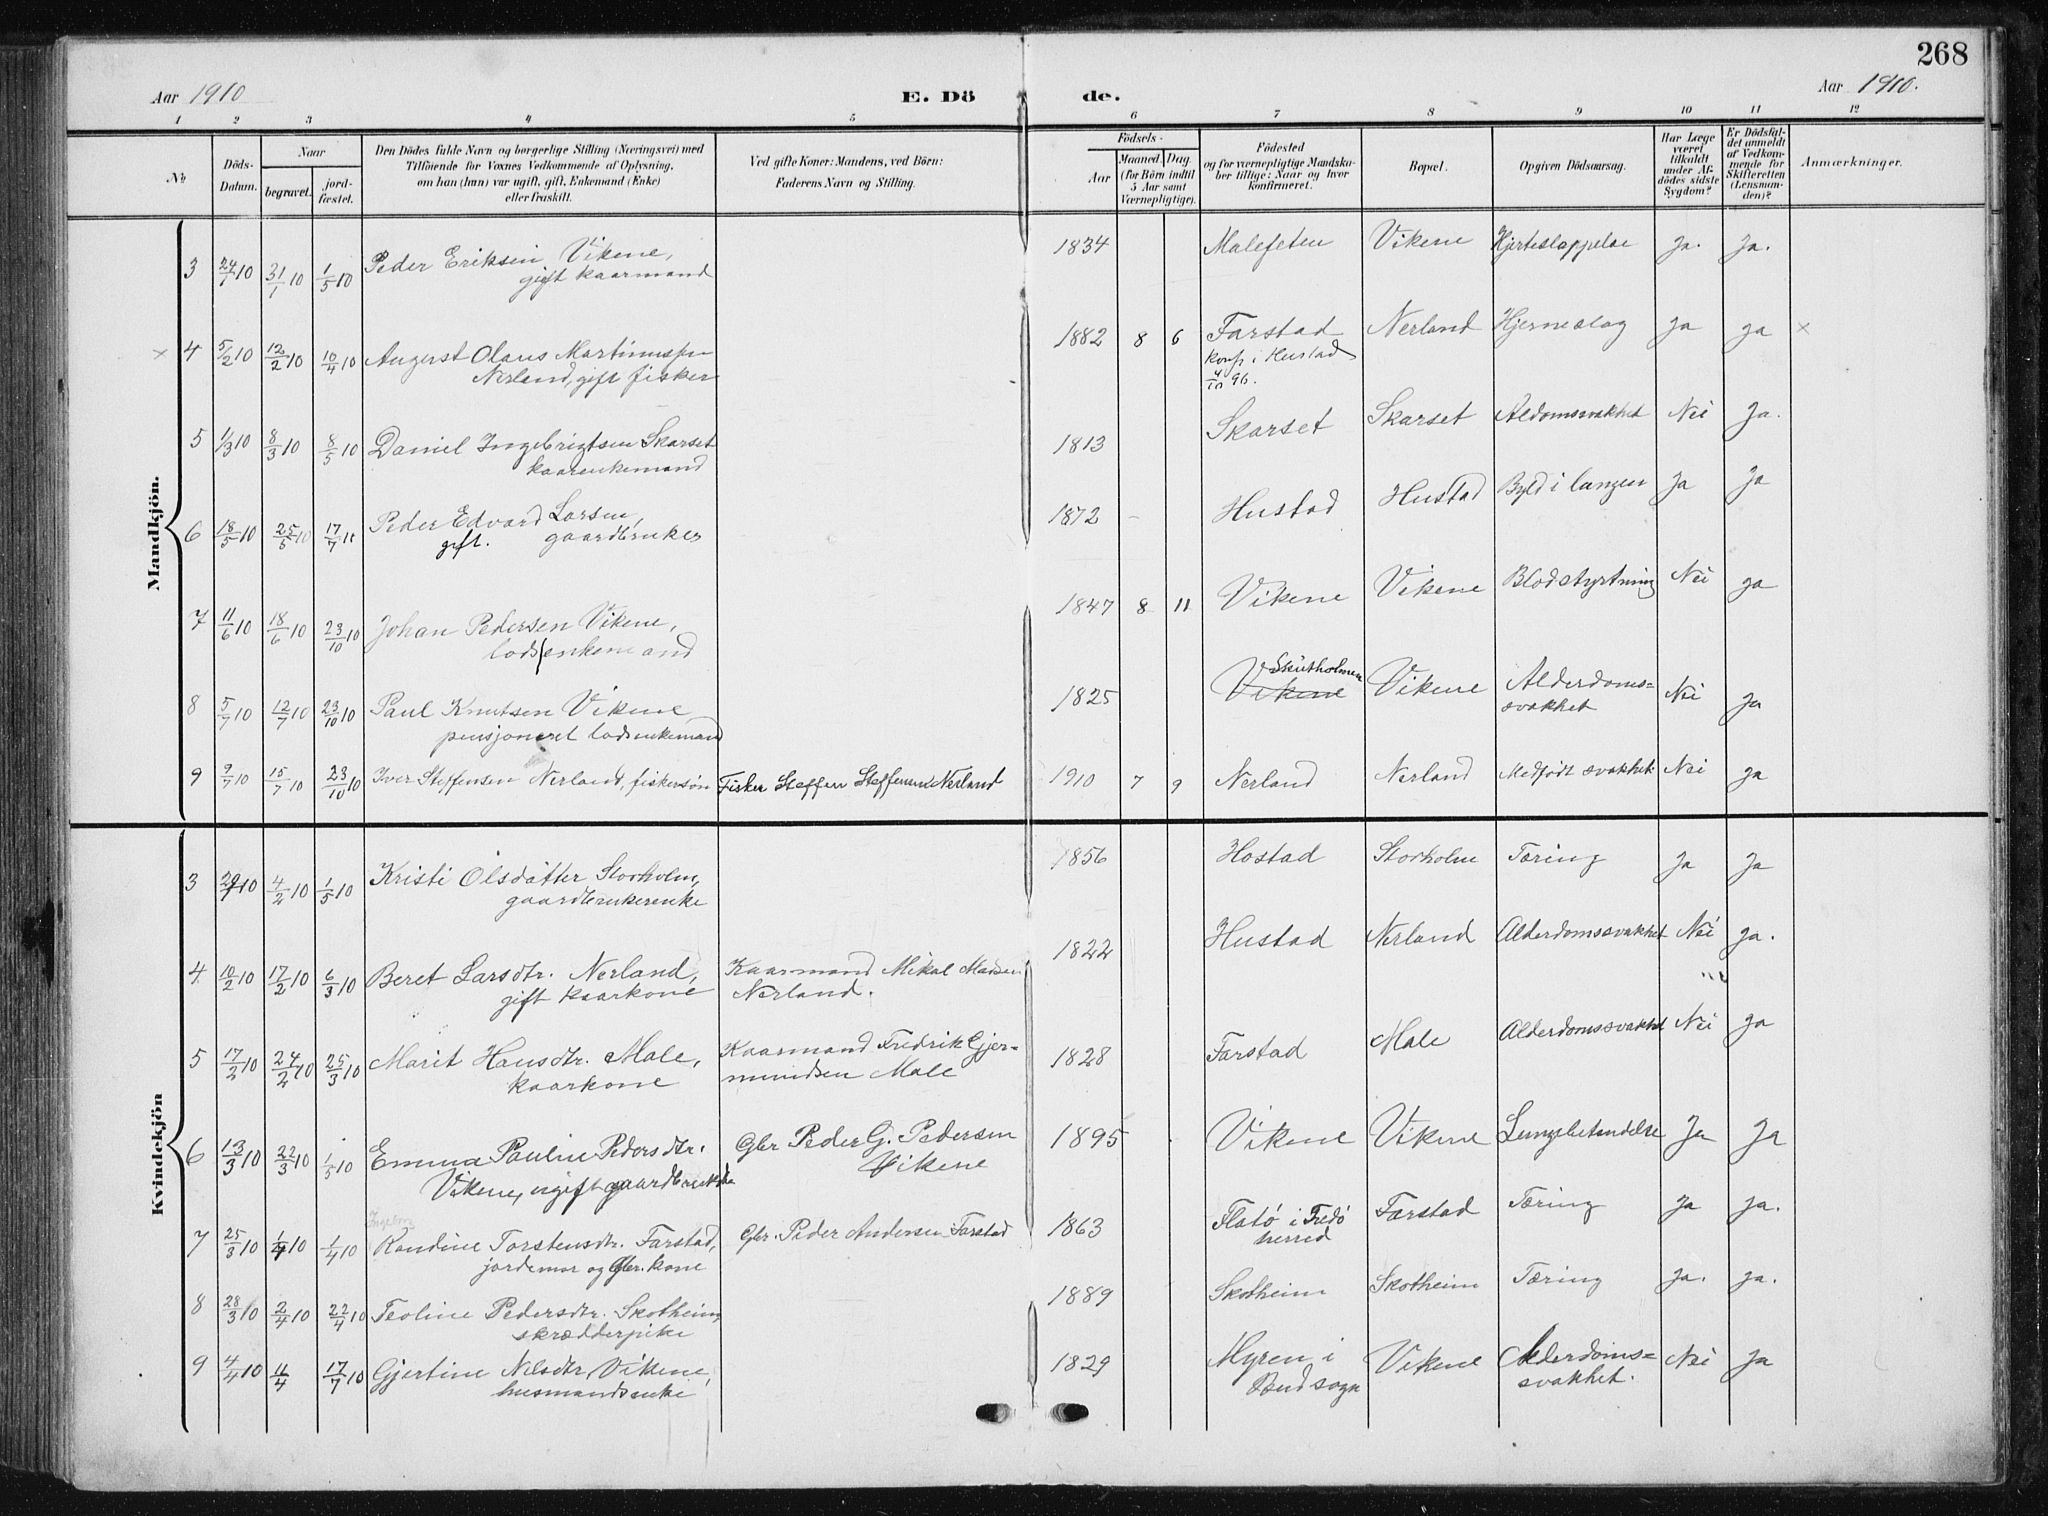 268
Aar 1910
E. Dö
de.
Aar 1910.
1 2 3 4 5 6 7 8 9 10 11 12
№
Döds-
Datum.
Naar
begravet.
jord-
fæstet.
Den Dödes fulde Navn og borgerlige Stilling (Næringsvei) med
Tilföiende for Voxnes Vedkommende af Oplysning,
om han (hun) var ugift, gift, Enkemand (Enke)
eller fraskilt.
Ved gifte Koner: Mandens, ved Börn:
Faderens Navn og Stilling.
Födsels-
Aar
Maaned. Dag.
(for Börn indtil
5 Aar samt
Værnepligtige).
Födested
og for værnepligtige Mandska-
ber tillige: Naar og hvor
konfirmeret.
Bopæl.
Opgiven Dödsaarsag.
Har Læge
været
tilkaldt
under Af-
dödes sidste
Sygdom?
Er Dödsfal-
det anmeldt
af Vedkom-
mende for
Skifteretten
(Lensman-
den)?
Anmærkninger.
Mandkjön.
3 24/1 10 31/1 10 1/5 10 Peder Eriksen Vikene, 1834 Malefeten Vikene Hjerteslappelse Ja. Ja.
gift kaarmand
× 4 5/2 10 12/2 10 10/4 10 August Olaus Martinussen 1882 8 6 Farstad Nerland Hjerneslag Ja Ja ×
Nerland, gift fisker konf. i Hustad
4/10 96.
5 1/3 10 8/3 10 8/5 10 Daniel Ingebrigtsen Skarset 1813 Skarset Skarset Aldomssvakhet Nei Ja.
kaarenkemand
6 18/5 10 25/5 10 17/7 11 Peder Edvard Larsen, 1872 – Hustad Hustad Byld i lungen Ja Ja
gift. gaardbruker
7 11/6 10 18/6 10 23/10 10 Johan Pedersen Vikene, 1847 8 11 Vikene Vikene Blodstyrtning Nei Ja
lods enkemand
8 5/7 10 12/7 10 23/10 10 Paul Knutsen Vikene 1825 Vikene Skutholmen Vikene Alderdoms= Nei Ja
pensjoneret lodsenkemand svakhet
9 9/7 10 15/7 10 23/10 10 Iver Steffensen Nerland, fiskersøn Fisker Steffen Steffensen Nerland 1910 7 9 Nerland Nerland Medfødt svakhet. Nei Ja
Kvindekjön
3 29/1 10 4/2 10 1/5 10 Kristi Olsdatter Storholm, 1856 Hostad Storholm Tæring Ja Ja
gaardbrukerenke
4 10/2 10 17/2 10 6/3 10 Beret Larsdtr. Nerland, Kaarmand Mikal Madsen 1822 Hustad Nerland Alderdomssvakhet Nei Ja.
gift kaarkone Nerland.
5 17/2 10 24/2 10 25/3 10 Marit Hansdtr. Male, Kaarmand Fredrik Gjer= 1828 Farstad Male Alderdomssvakhet Nei Ja
kaarkone mundsen Male
6 13/3 10 22/3 10 1/5 10 Emma Pauline Pedersdtr. Gbr Peder G. Pedersen 1895 Vikene Vikene Lungebetændelse Ja Ja
Vikene, ugift Vikene
7 25/3 10 1/4 10 1/4 10 Ingeborg
Randine Torstensdtr. Farstad, Gbr. Peder Andersen Farstad 1863 Flatø i Fredø Farstad Tæring Ja Ja.
jordemor og Gbr. kone herred
8 28/3 10 2/4 10 22/4 10 Teoline Pedersdtr. Skotheim, 1889 Skotheim Skotheim Tæring Ja. Ja.
skrædderpike
9 4/4 10 11/4 17/7 10 Gjertine Nilsdtr. Vikene, 1829 Myren i Vikene Alderdoms= Nei Ja
husmandsenke Bud sogn svakhet.